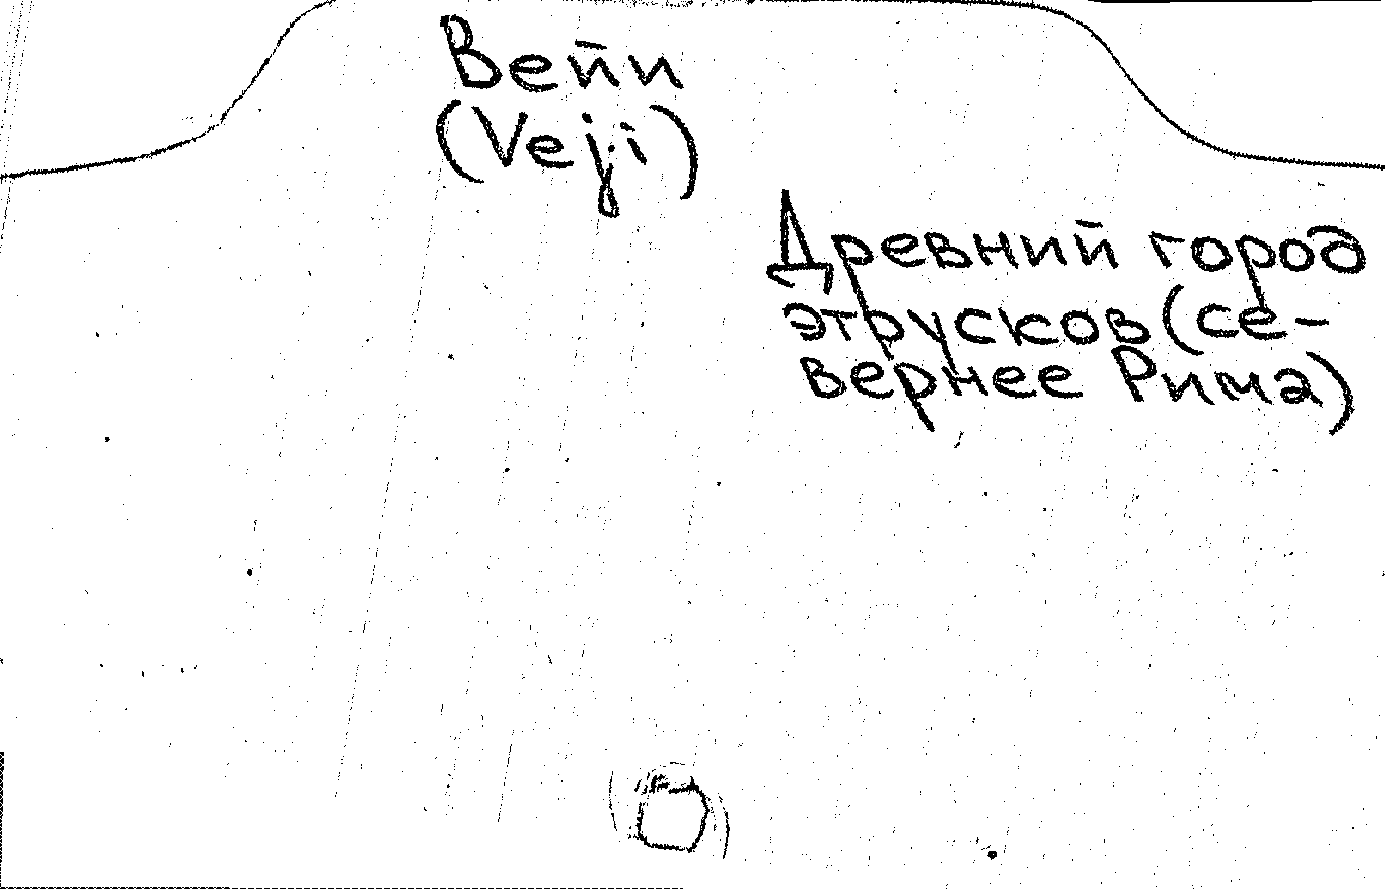 Вейи
(Veji)
Древний город
этрусков (се-
вернее Рима)